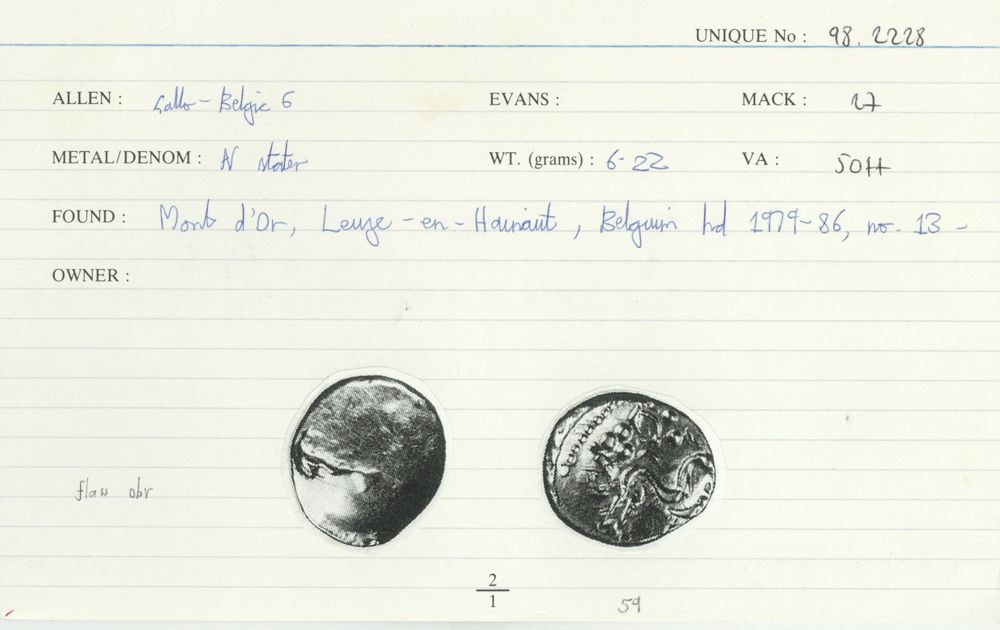 UNIQUE No : 98. 2228
ALLEN : Gallo-Belgic 6 EVANS : MACK : 27
METAL/DENOM : N stater WT. (grams) : 6.22 VA : 5044
FOUND : Mont d'Or, Leuze-en-Hainaut, Belguim hd 1979-86, no. 13 -
OWNER :
flaw obv
2
1
59